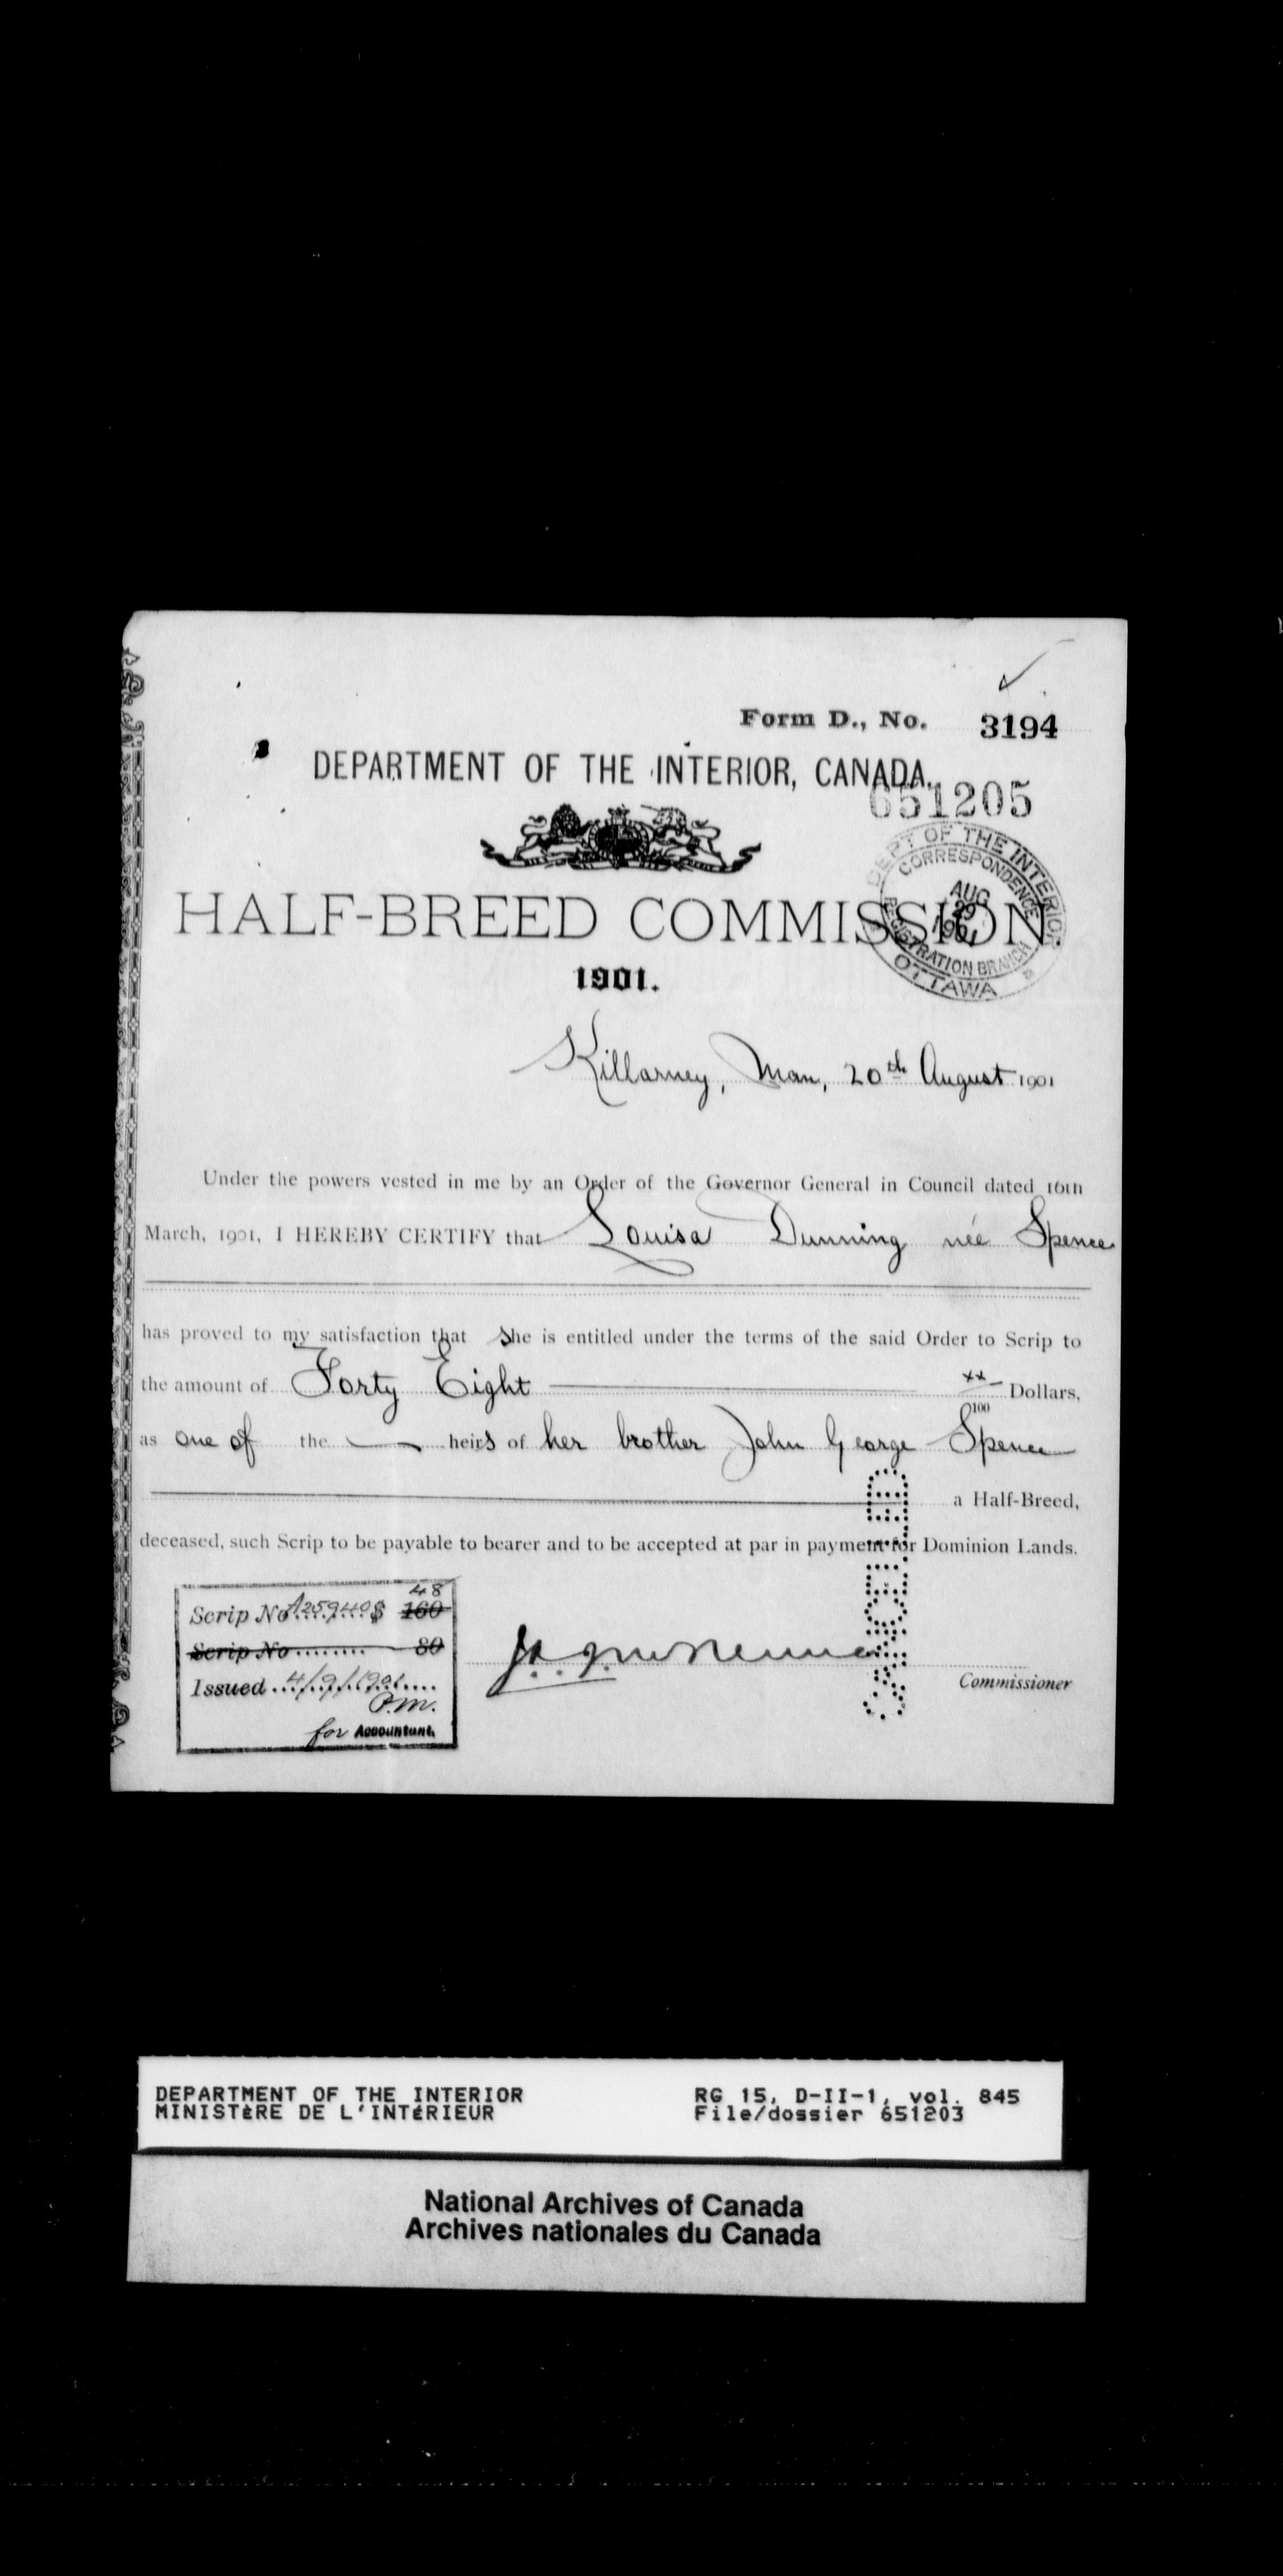 Form D., No. 3194
DEPARTMENT OF THE INTERIOR, CANADA.
651205
DEPT OF THE INTERIOR
CORRESPONDENCE
AUG
29
1901
REGISTRATION BRANCH
OTTAWA
HALF-BREED COMMISSION
1901.
Killarney, Man, 20th August 1901
Under the powers vested in me by an Order of the Governor General in Council dated 16th
March, 1901, I HEREBY CERTIFY that Louisa Dunning née Spence
has proved to my satisfaction that She is entitled under the terms of the said Order to Scrip to
the amount of Forty Eight xx/100 Dollars,
as one of the heirs of her brother John George Spence
a Half-Breed,
deceased, such Scrip to be payable to bearer and to be accepted at par in payment for Dominion Lands.
48
Scrip No A25940 $ 160
Scrip No 80
Issued 4/9/1901
P.M.
for Accountant.
Commissioner
DEPARTMENT OF THE INTERIOR RG 15, D-II-1, vol. 845
MINISTÈRE DE L'INTÉRIEUR File/dossier 651203
National Archives of Canada
Archives nationales du Canada